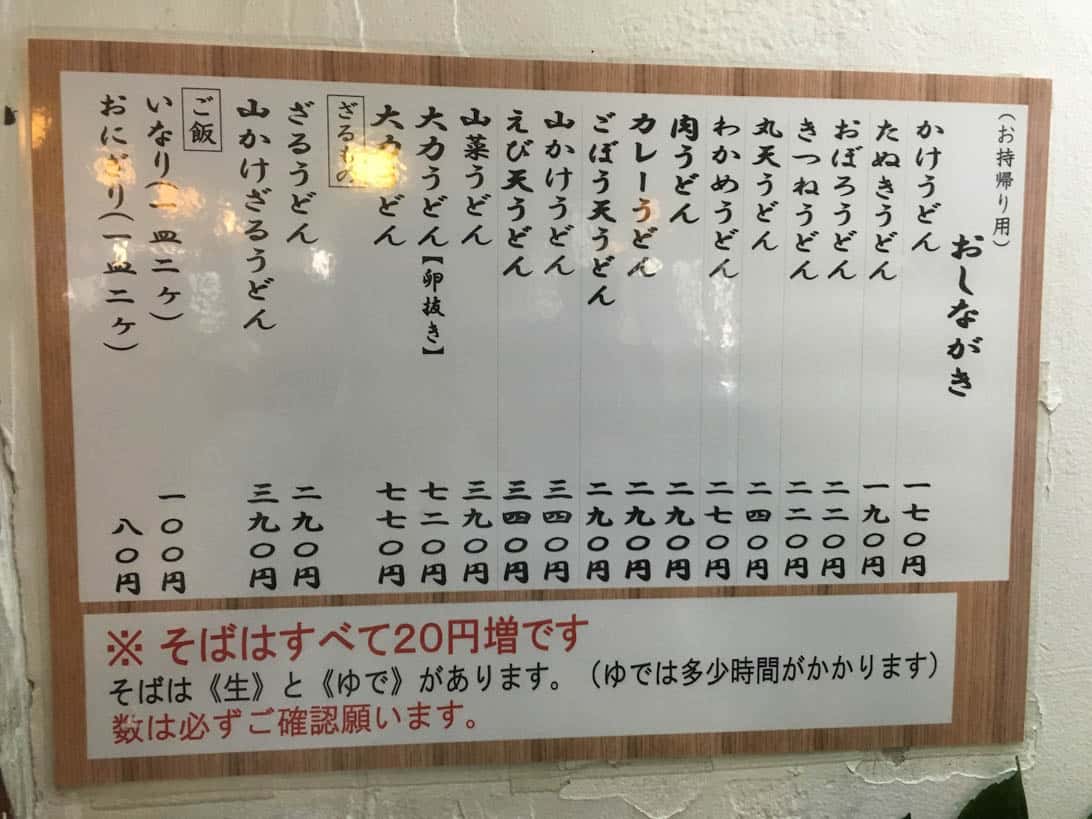 (お持帰り用)
おしながき
かけうどん 一七〇円
たぬきうどん 一九〇円
おぼろうどん 二二〇円
きつねうどん 二二〇円
丸天うどん 二四〇円
わかめうどん 二七〇円
肉うどん 二九〇円
カレーうどん 二九〇円
ごぼう天うどん 二九〇円
山かけうどん 三四〇円
えび天うどん 三四〇円
山菜うどん 三九〇円
大力うどん【卵抜き】 七二〇円
大力うどん 七七〇円
ざるもの
ざるうどん 二九〇円
山かけざるうどん 三九〇円
ご飯
いなり(一皿二ケ) 一〇〇円
おにぎり(一皿二ケ) 八〇円
※ そばはすべて20円増です
そばは《生》と《ゆで》があります。(ゆでは多少時間がかかります)
数は必ずご確認願います。